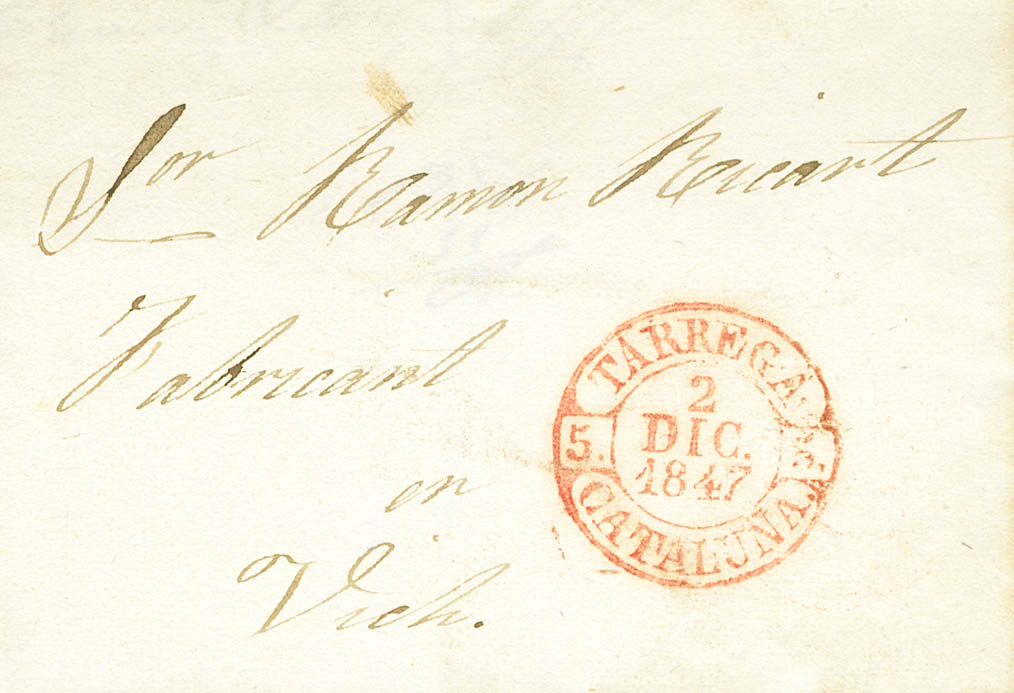 Sor Ramon Ricart
Fabricant
en
Vich.
TARREGA
2
DIC.
1847
5.
CATALUNA.